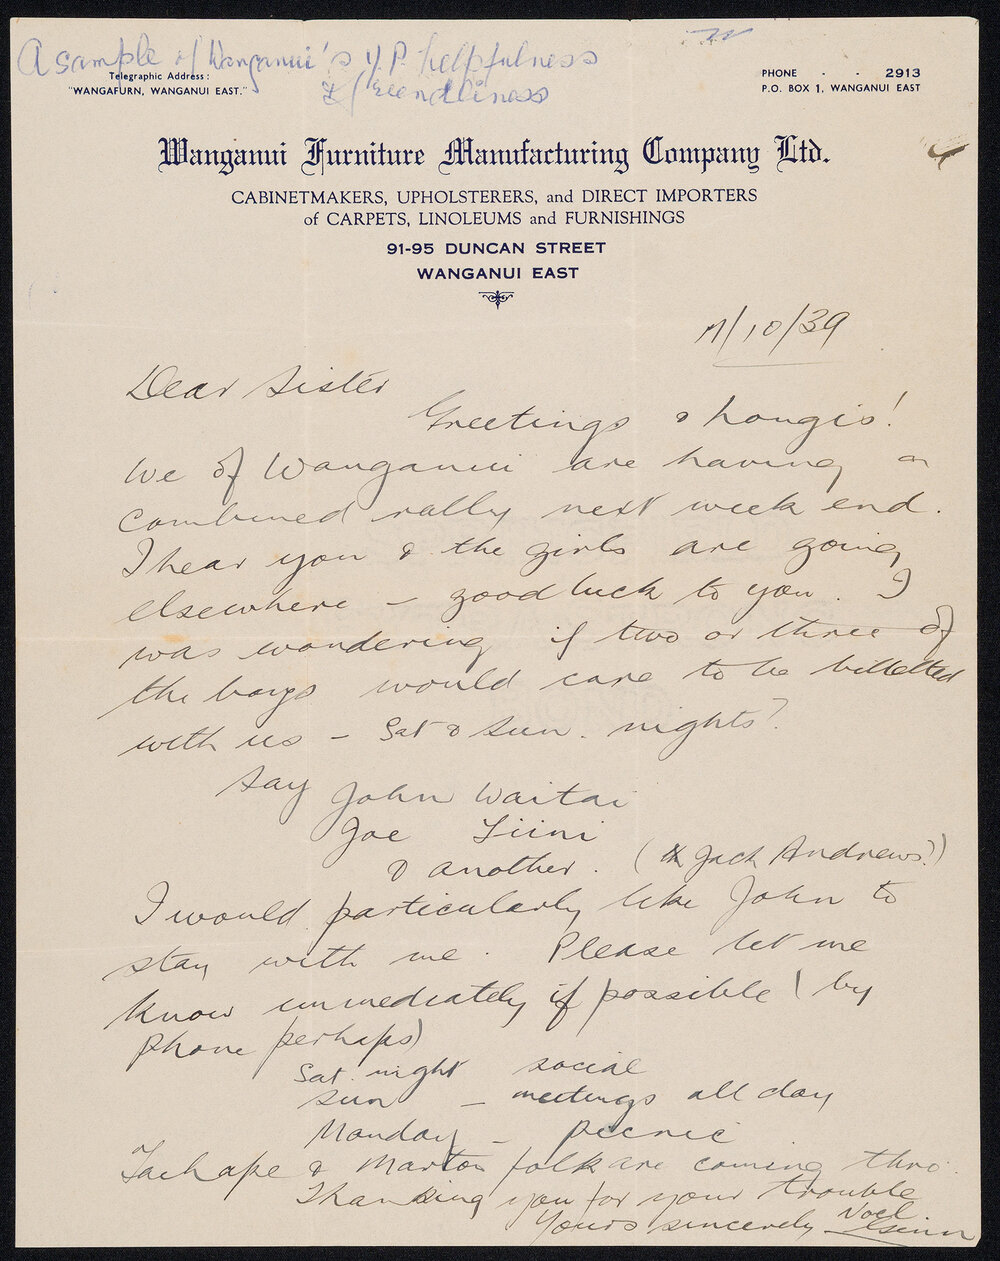 A sample of Wanganui's Y.P. helpfulness
& friendliness
Telegraphic Address:
"WANGAFURN, WANGANUI EAST."
PHONE - - 2913
P.O. BOX 1, WANGANUI EAST
Wanganui Furniture Manufacturing Company Ltd.
CABINETMAKERS, UPHOLSTERERS, and DIRECT IMPORTERS
of CARPETS, LINOLEUMS and FURNISHINGS
91-95 DUNCAN STREET
WANGANUI EAST
/10/39
Dear Sister
Greetings & hongis!
We of Wanganui are having a
combined rally next week end.
I hear you & the girls are going
elsewhere – good luck to you. I
was wondering if two or three of
the boys would care to be billetted
with us – Sat & Sun. nights?
Say John Waitai
Joe Tiini
& another. (Jack Andrews?)
I would particularly like John to
stay with me. Please let me
know immediately if possible (by
phone perhaps)
Sat. night social
Sun – meetings all day
Monday – picnic
Taihape & Marton folk are coming thro.
Thanking you for your trouble
Yours sincerely Noel